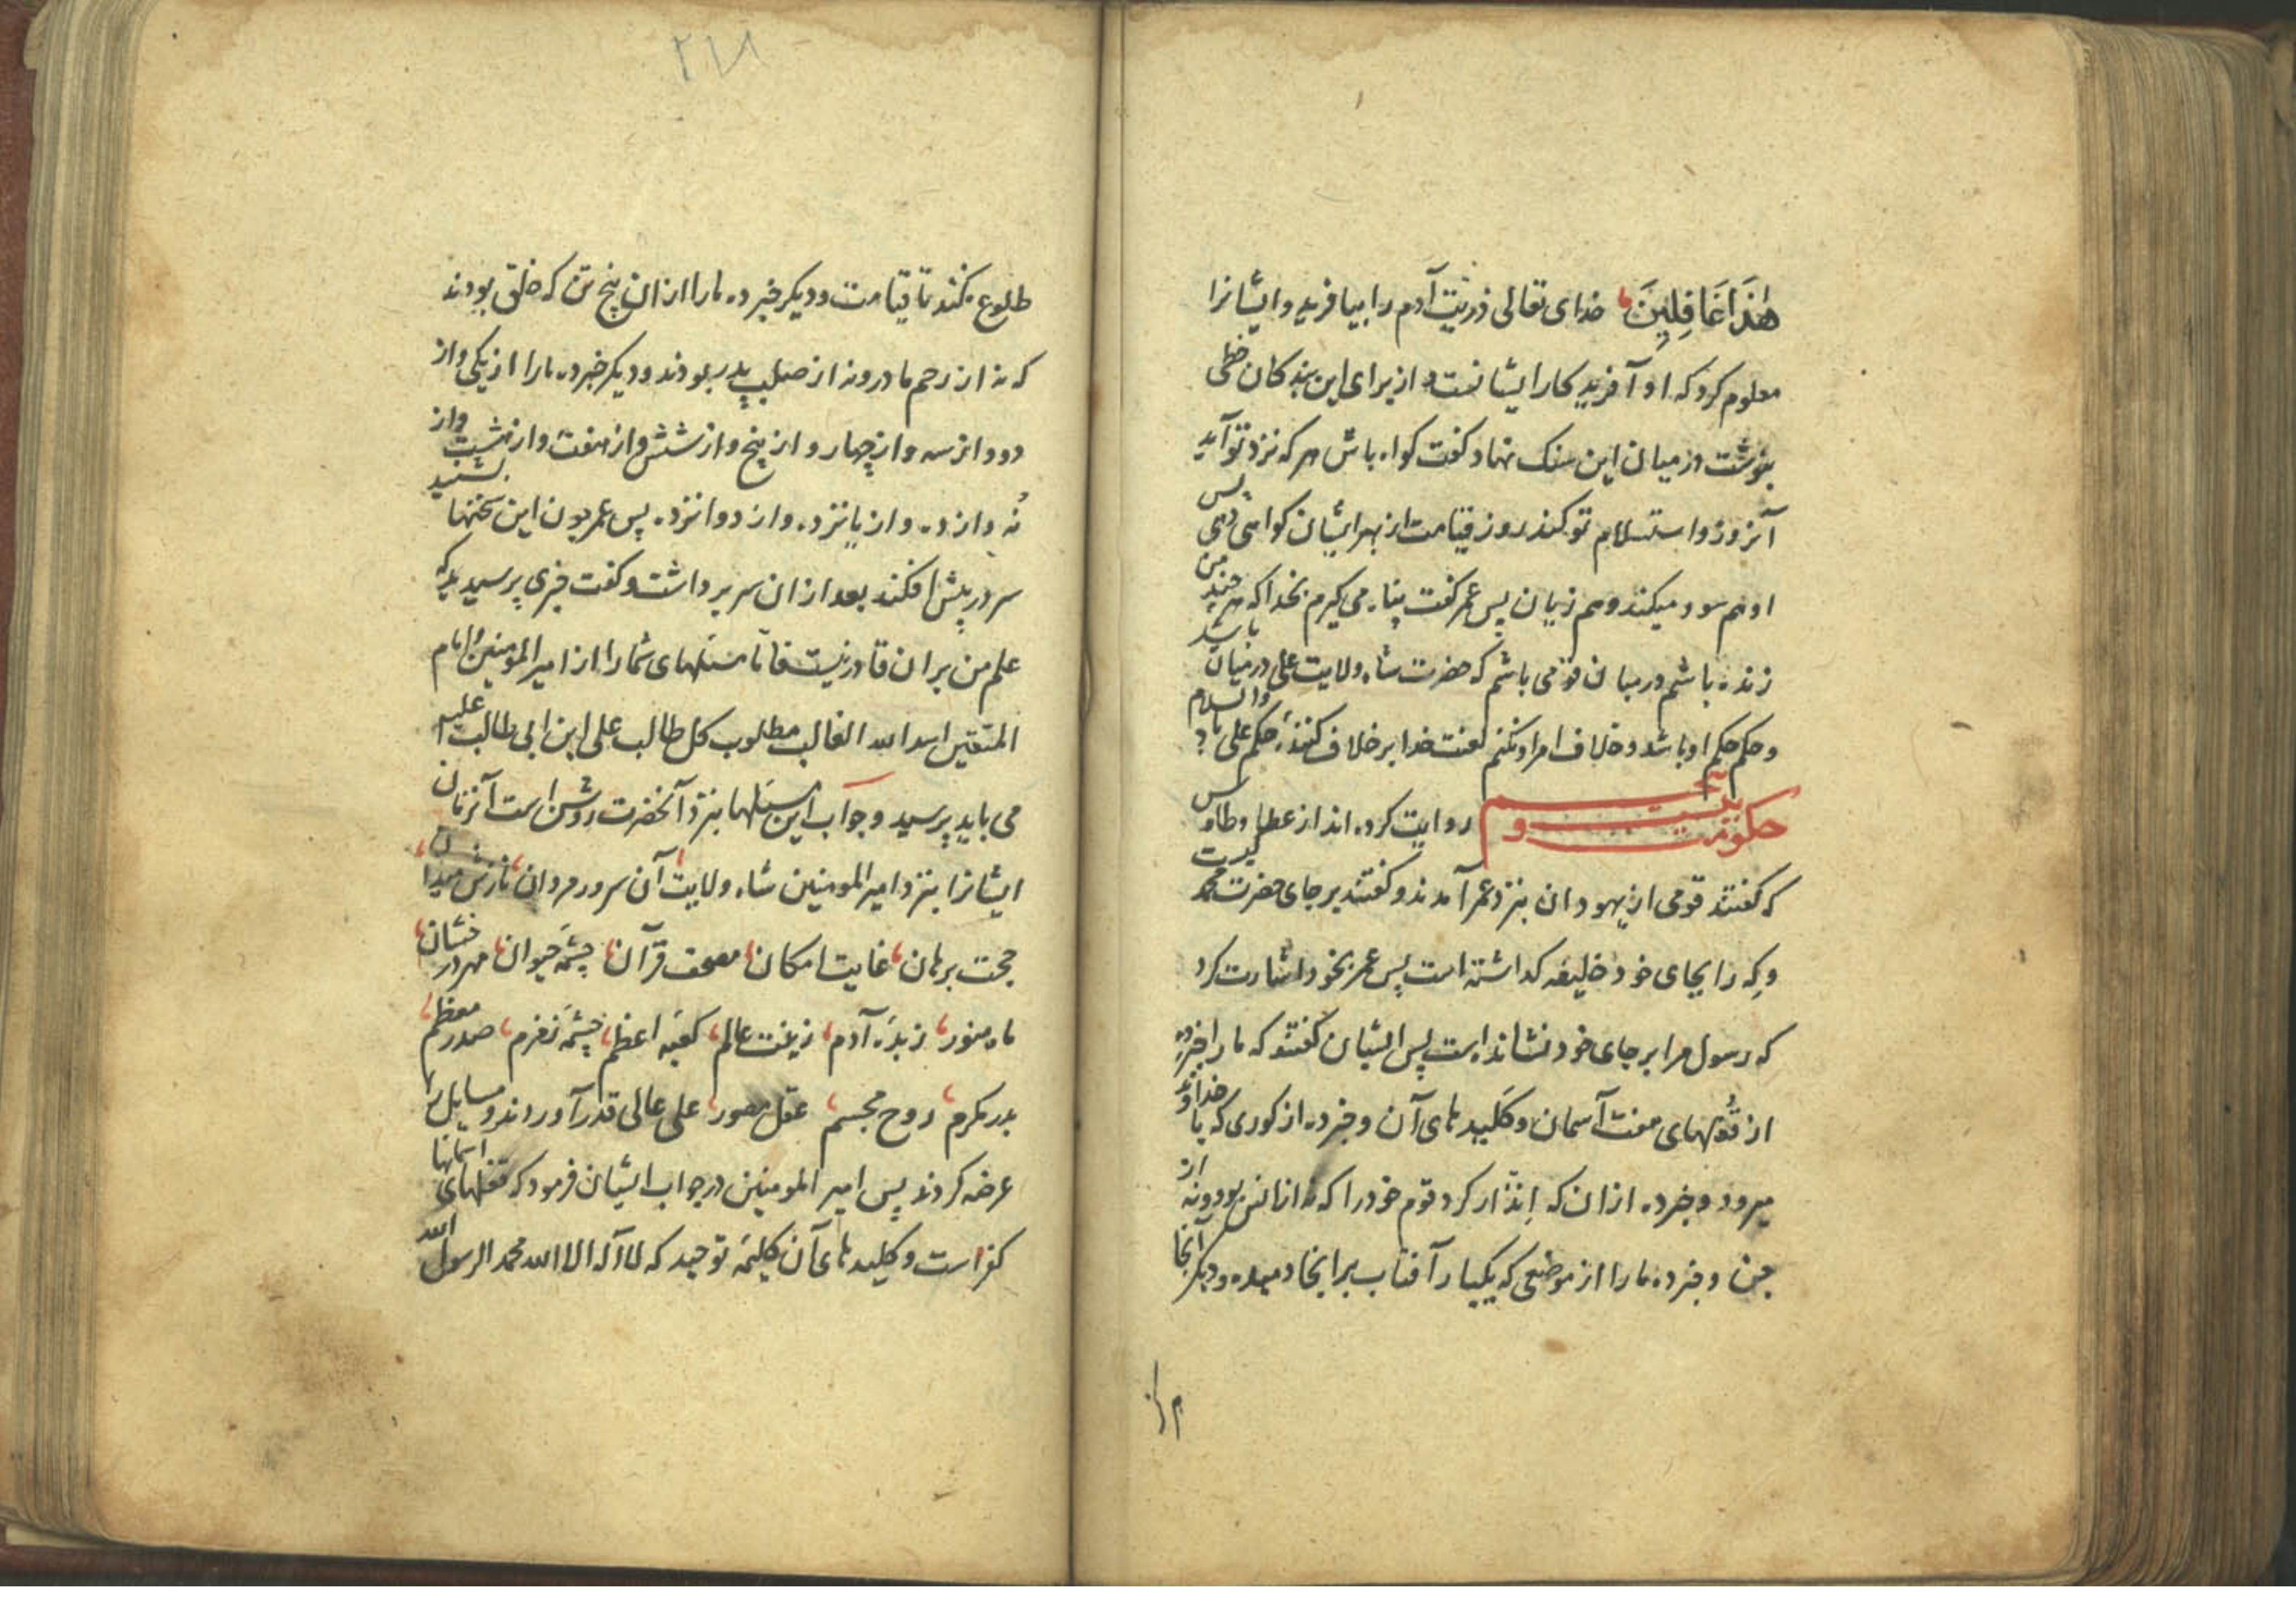 هٰذَا غَافِلِينَ خدای تعالی ذریت آدم را بیافرید و ایشانرا
معلوم کرد که او آفریدکار ایشانست و از برای این بندکان خطی
بنوشت و در میان این سنک نهاد و کفت کواه باش هر که نزد تو آید
آنروز و استسلام تو کند روز قیامت از بهر ایشان کواهی دهی پس
او هم سود میکند و هم زیان پس عمر کفت پناه می کیرم بخدا که هر چند من
زنده باشم در میان قومی باشم که حضرت شاه ولایت علی در میان باشد
و حکم حکم او باشد و خلاف امر او نکنم لعنت خدا بر خلاف کنندۀ حکم علی باد والسلام
حکومت بیست و روایت کرده اند از عطا و طاوس
که کفتند قومی از یهودان بنزد عمر آمدند و کفتند بر جای حضرت محمد کیست
و که را بجای خود خلیفه کذاشته است پس عمر بخود اشارت کرد
که رسول مرا بر جای خود نشانده است پس ایشان کفتند که ما را خبر ده
از قفلهای هفت آسمان و کلیدهای آن و خبر ده از کوری که با خداوند
میرود و خبر ده از ان که انذار کرد قوم خود را که نه از انس بود و نه از
جن و خبر ده ما را از موضعی که یکبار آفتاب بر انجا دمیده و دیکر آنجا
۲۱۸
طلوع نکند تا قیامت و دیکر خبر ده ما را از ان پنج تن که خلق بودند
که نه از رحم مادر و نه از صلب پدر بودند و دیکر خبر ده ما را از یکی و از
دو و از سه و از چهار و از پنج و از شش و از هفت و از هشت و از
نُه و از ده و از یانزده و از دوانزده پس عمر چون این سخنها بشنید
سر در پیش افکند بعد از ان سر برداشت و کفت چیزی پرسیدید که
علم من بران قادر نیست فاما مسئلهای شما را از امیر المومنین و امام
المتقین اسد الله الغالب مطلوب کل طالب علی ابن ابی طالب علیه
می باید پرسید و جواب این مسئلها بنزد آنحضرت روشن است آنزمان
ایشانرا بنزد امیر المومنین شاه ولایت آن سرور مردان نازش میدان
حجت برهان غایت امکان مصحف قرآن چشمۀ حیوان مهر درخشان
ماه منور زبدۀ آدم زینت عالم کعبۀ اعظم چشمۀ زمزم صدر معظم
بدر مکرم روح مجسم عقل مصور علی عالی قدر آوردند و مسایل را
عرضه کردند پس امیر المومنین در جواب ایشان فرمود که قفلهای اسمانها
کفر است و کلیدهای آن کلمۀ توحید که لا اله الا الله محمد الرسول الله